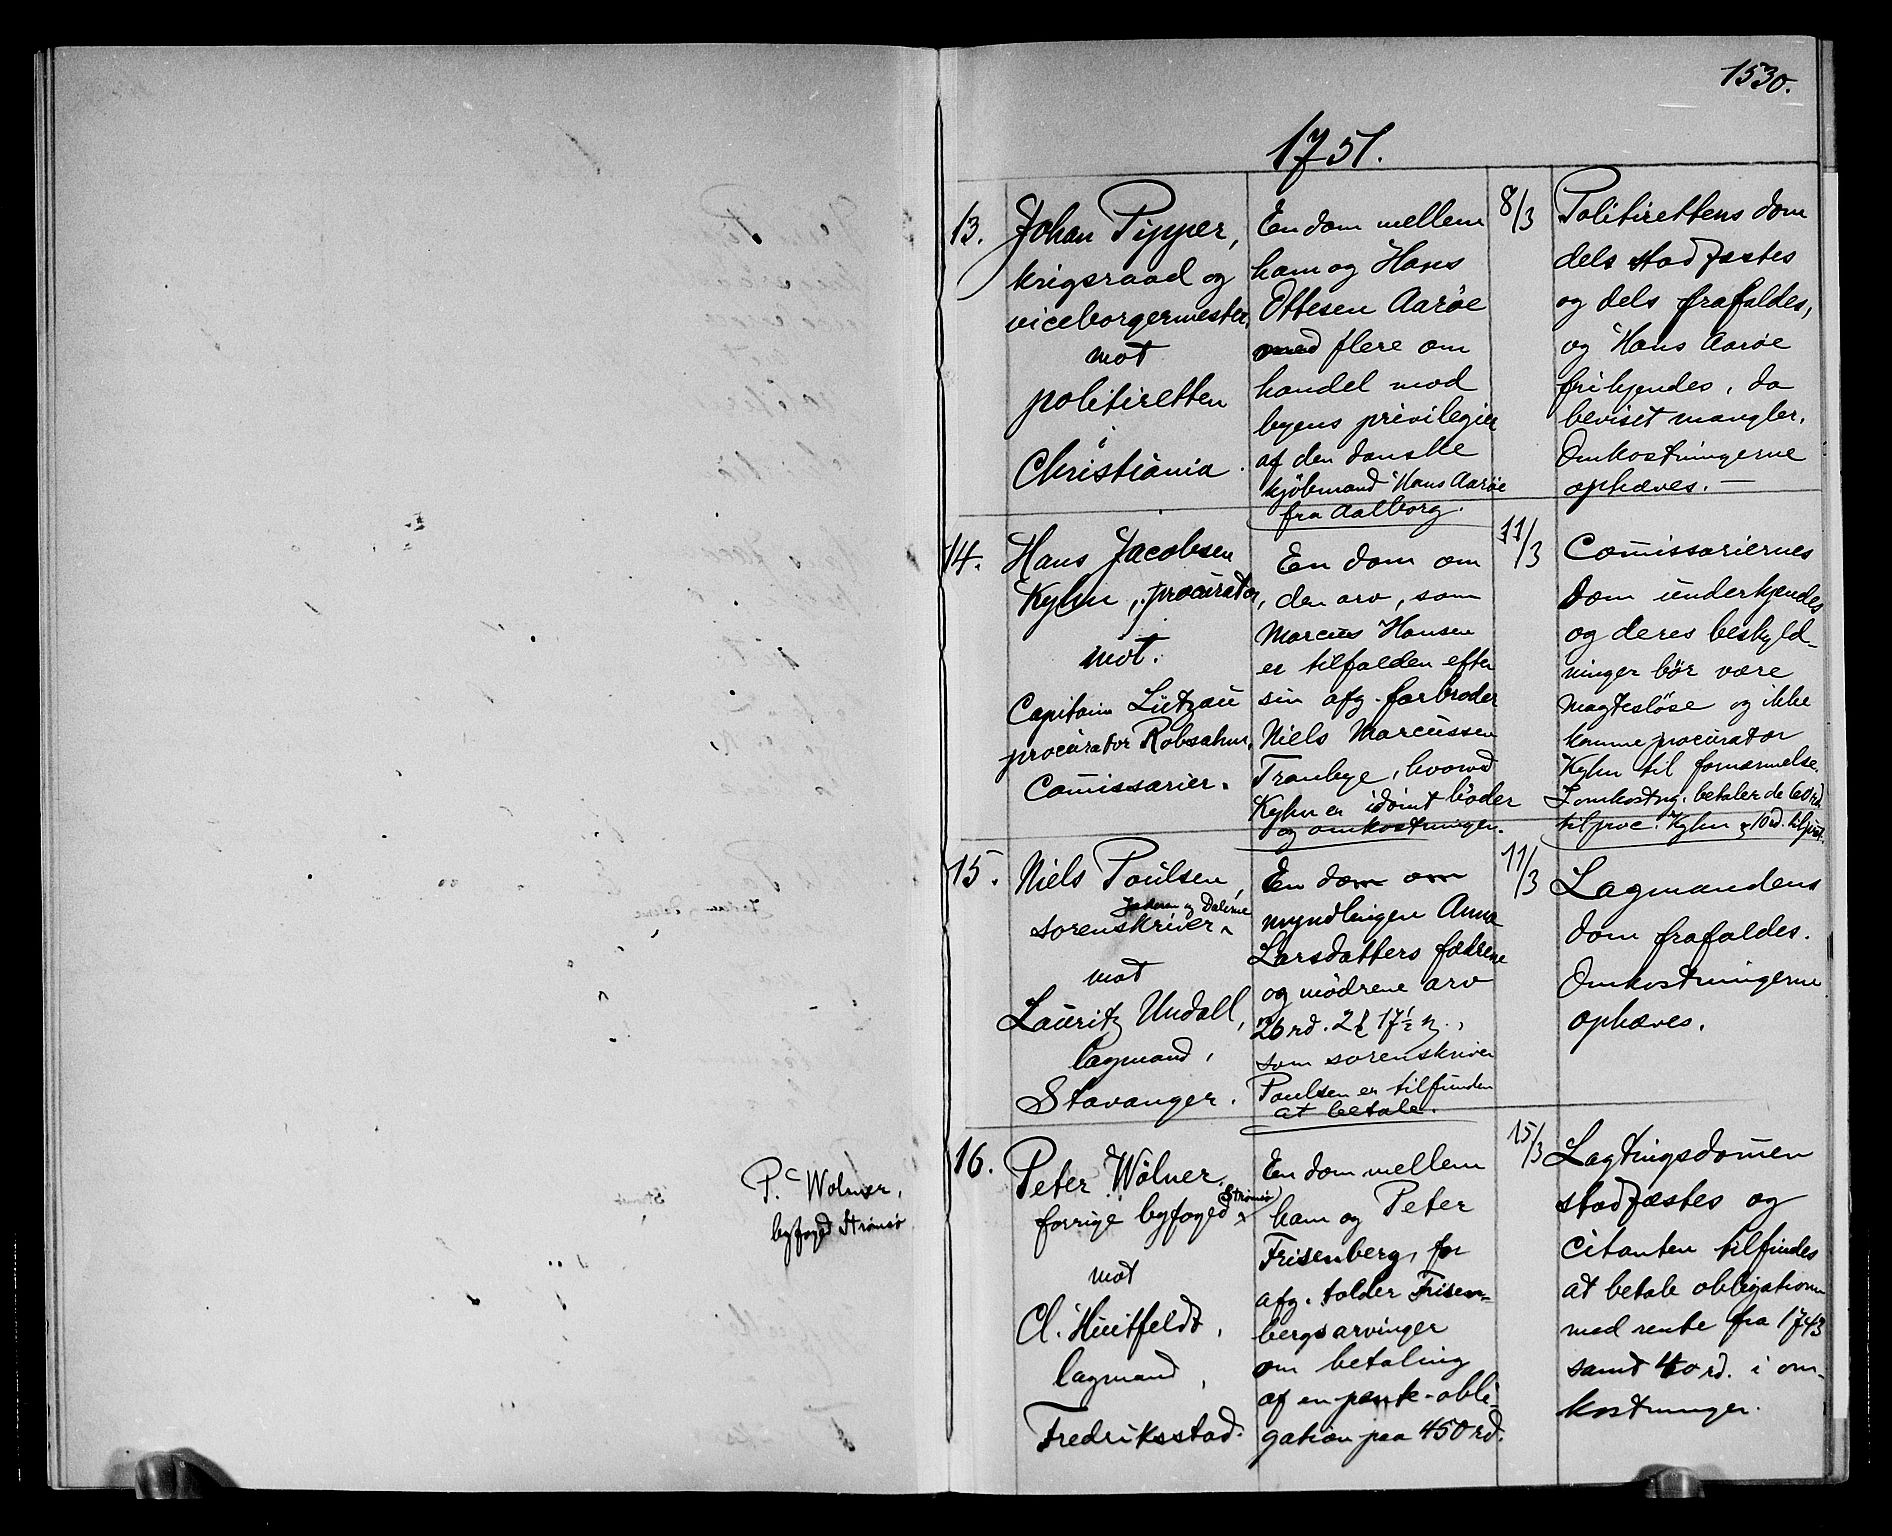 1530.
1751.
13.
Johan Pipper,
krigsraad og
viceborgermester,
mot
politiretten
Christiania.
En dom mellem
ham og Hans
Ottesen Aarøe
med flere om
handel mod
byens privilegier
af den danske
kjøbmand Hans Aarøe
fra Aalborg.
8/3
Politirettens dom
dels stadfæstes
og dels frafaldes,
og Hans Aarøe
frikjendes, da
beviset mangler.
Omkostningerne
ophæves. —
14.
Hans Jacobsen
Kyhn, procurator,
mot.
Capitain Lützau
procurator Robsahm,
Comissarier.
En dom om
den arv, som
Marcus Hansen
er tilfalden efter
sin afg. farbroder
Niels Marcussen
Tranbye, hvorved
Kyhn er idømt bøder
og omkostninger.
11/3
Comissariernes
dom underkjendes
og deres beskyld-
ninger bør være
magtesløse og ikke
komme procurator
Kyhn til fornærmelse.
I omkostng. betaler de 60 rd.
til proc. Kyhn & 10 rd. til just.
15.
Niels Poulsen,
Jæderen og Dalerne
sorenskriver
mot
Lauritz Undall,
lagmand,
Stavanger.
En dom om
myndlingen Anna
Larsdatters fædrene
og mødrene arv
26 rd. 2 17½
som sorenskriver
Poulsen er tilfunden
at betale.
11/3
Lagmandens
dom frafaldes.
Omkostningerne
ophæves.
16.
Peter Wølner,
Strømsø
forrige byfoged
mot
Cl. Huitfeldt,
lagmand,
Fredriksstad.
En dom mellem
ham og Peter
Frisenberg, for
afg. tolder Frisen-
bergs arvinger
om betaling
af en pante-obli-
gation paa 450 rd.
15/3
Lagtingsdomen
stadfæstes og
Citanten tilfindes
at betale obligationen
med rente fra 1743
samt 40 rd. i om-
kostninger.
P. Wolner,
byfoged Strømsø